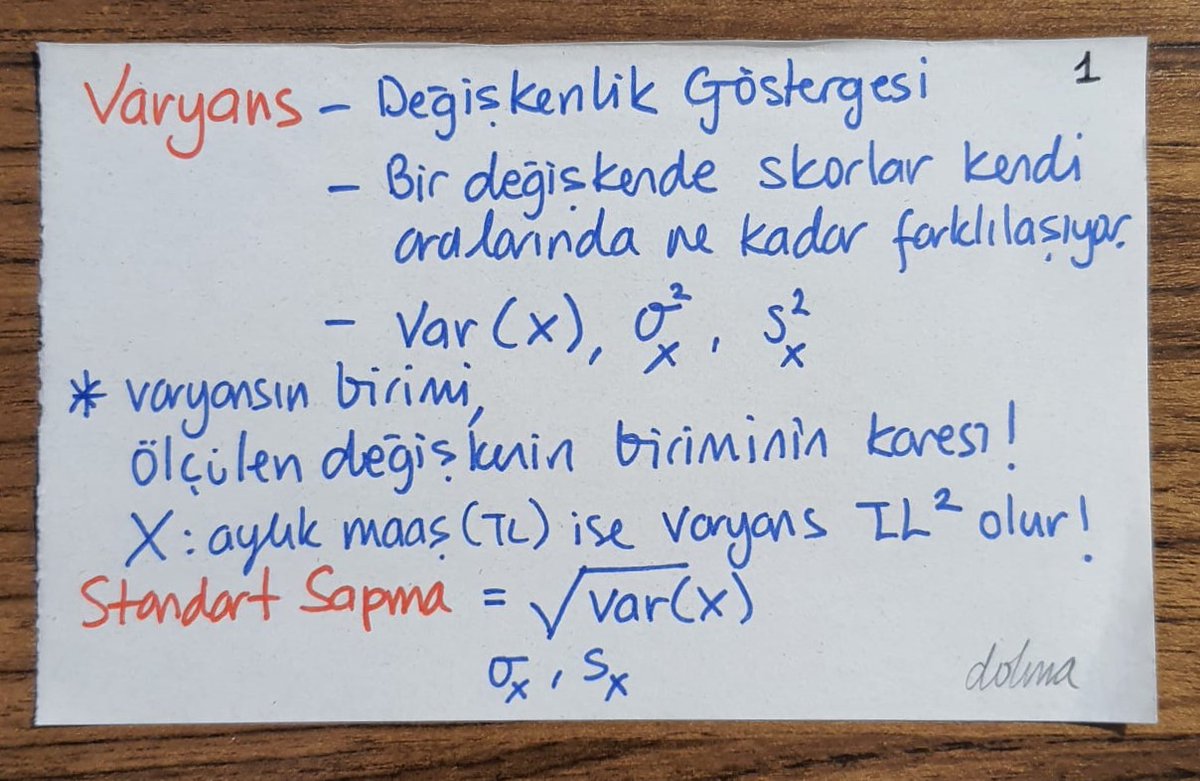 1
Varyans - Değişkenlik Göstergesi
- Bir değişkende skorlar kendi
aralarında ne kadar farklılaşıyor.
- Var(x), σ²ₓ, s²ₓ
* varyansın birimi,
ölçülen değişkenin biriminin karesi!
X: aylık maaş (TL) ise varyans TL² olur!
Standart Sapma = √var(x)
σₓ, sₓ
dolma